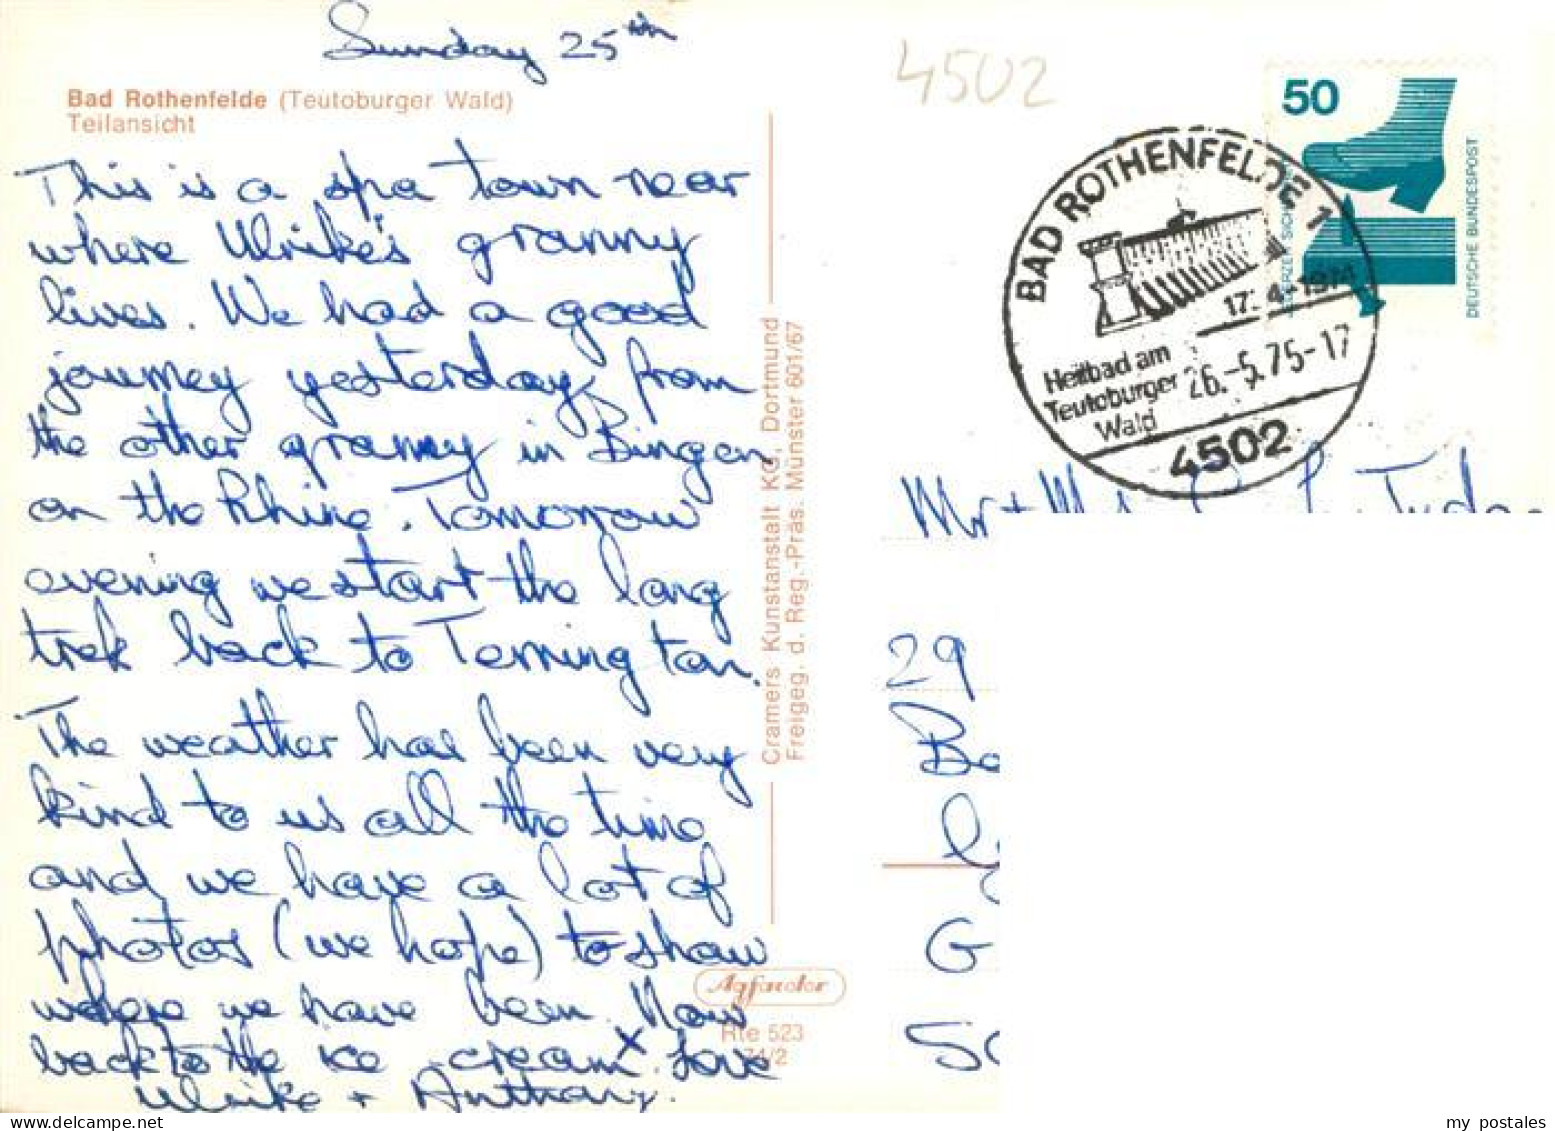 Sunday 25th
Bad Rothenfelde (Teutoburger Wald)
Teilansicht
This is a spa town near
where Ulrike's granny
lives. We had a good
journey yesterday from
the other granny in Bingen
on the Rhine. Tomorrow
evening we start the long
trek back to Terrington.
The weather has been very
kind to us all the time
and we have a lot of
photos (we hope) to show
where we have been. Now
back to the ice cream x. Love
Ulrike + Anthony.
Cramers Kunstanstalt KG, Dortmund
Freigeg. d. Reg.-Präs. Münster 601/67
Agfacolor
Rte 523
74/2
4502
50
DEUTSCHE BUNDESPOST
BAD ROTHENFELDE 1
17.-4.-1974
Heilbad am
Teutoburger
Wald
26.-5.75-17
4502
Mr + Mrs
29
G
my postales